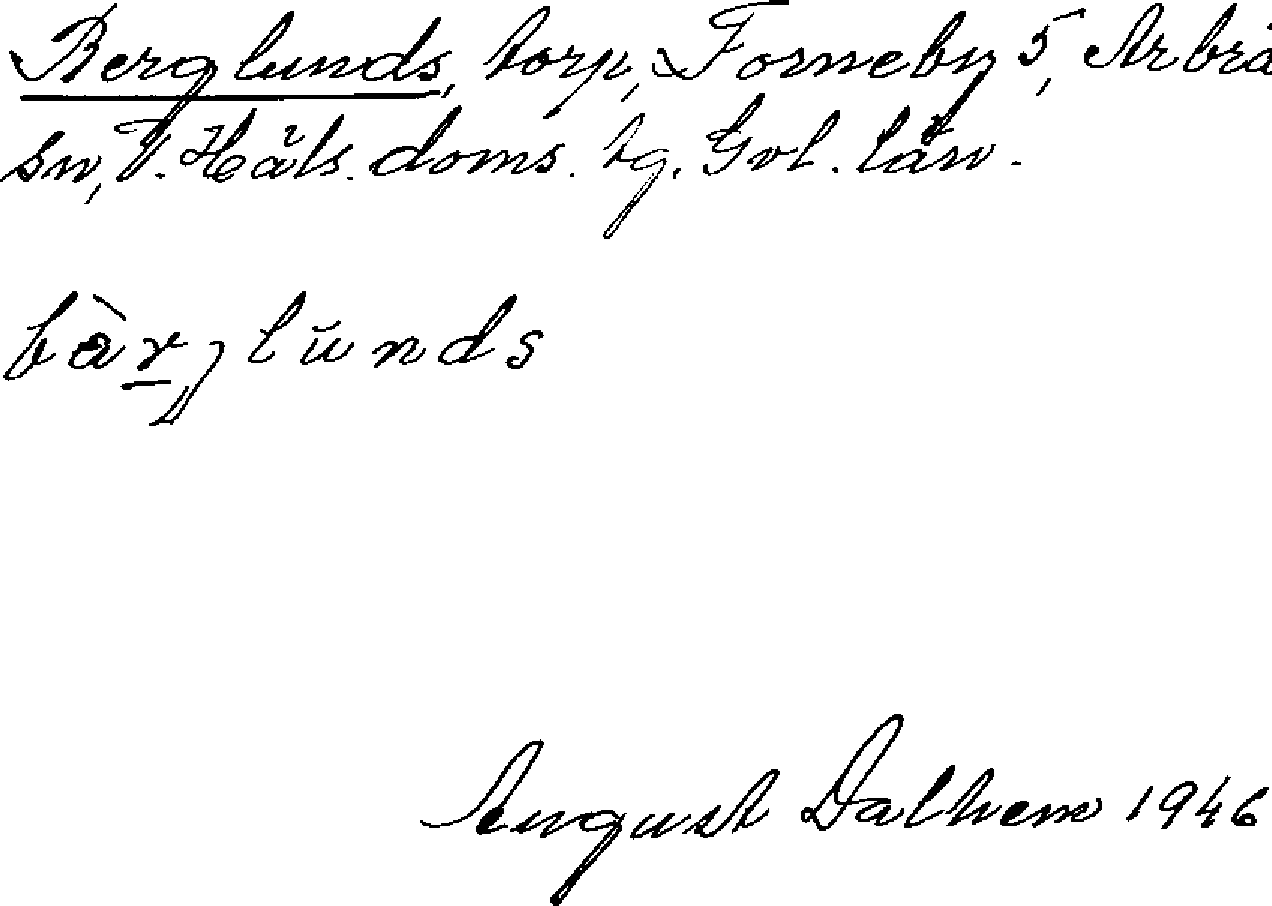 Berglunds, torp, Forneby 5, Arbrå
sn, V. Häls. doms. tg. Gvl. län.
bàrglunds
August Dalhem 1946